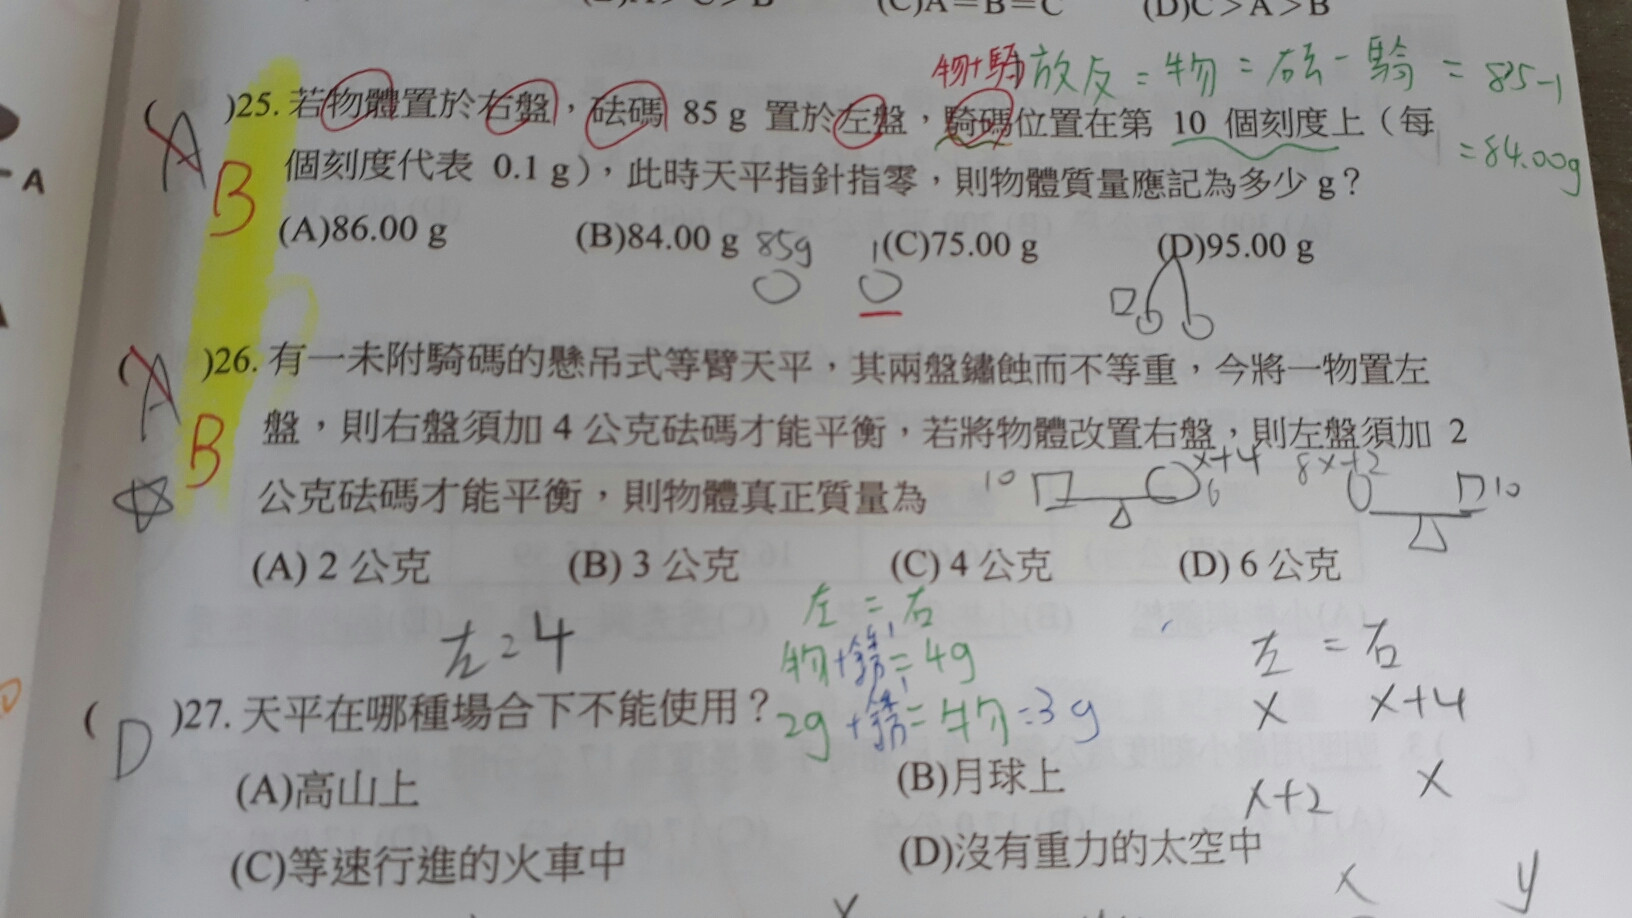 (C)A=B=C (D)C>A>B
物+騎放反=物=砝-騎=85-1
=84.00g
(A B)25. 若物體置於右盤，砝碼 85 g 置於左盤，騎碼位置在第 10 個刻度上（每
個刻度代表 0.1 g），此時天平指針指零，則物體質量應記為多少 g？
(A)86.00 g (B)84.00 g (C)75.00 g (D)95.00 g
85g 1
(A B)26. 有一未附騎碼的懸吊式等臂天平，其兩盤鏽蝕而不等重，今將一物置左
盤，則右盤須加 4 公克砝碼才能平衡，若將物體改置右盤，則左盤須加 2
公克砝碼才能平衡，則物體真正質量為
10 x+4 6 8 x+2 10
(A) 2 公克 (B) 3 公克 (C) 4 公克 (D) 6 公克
左=右
左=4 物+銹=4g 左=右
(D)27. 天平在哪種場合下不能使用？
2g+銹=物=3g x x+4
(A)高山上 (B)月球上
x+2 x
(C)等速行進的火車中 (D)沒有重力的太空中
x y
x
A